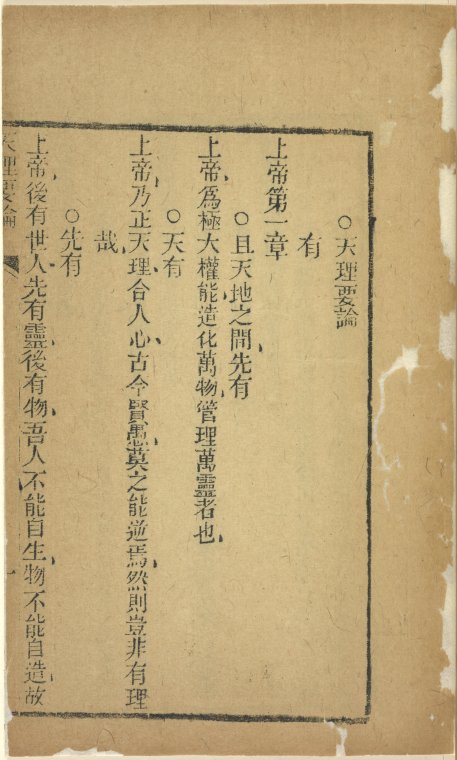 ○天理要論
有
上帝第一章
○且天地之間先有
上帝爲極大權能造化萬物管理萬靈者也
○天有
上帝乃正天理合人心古今賢愚莫之能逆焉然則豈非有理
哉
○先有
上帝後有世人先有靈後有物吾人不能自生物不能自造故
天理要論
一